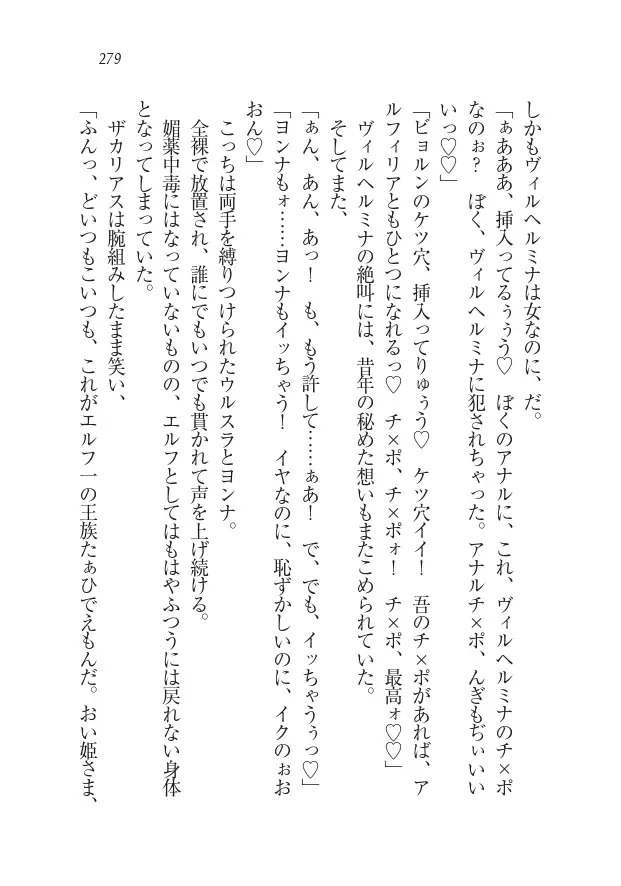 279
しかもヴィルヘルミナは女なのに、だ。
「ぁあああ、挿入ってるぅぅう♡　ぼくのアナルに、これ、ヴィルヘルミナのチ×ポ
なのぉ？　ぼく、ヴィルヘルミナに犯されちゃった。アナルチ×ポ、んぎもぢぃいい
いっ♡♡」
「ビョルンのケツ穴、挿入ってりゅぅう♡　ケツ穴イイ！　吾のチ×ポがあれば、ア
ルフィリアともひとつになれるっ♡　チ×ポ、チ×ポォ！　チ×ポ、最高ォ♡♡」
ヴィルヘルミナの絶叫には、昔年の秘めた想いもまたこめられていた。
そしてまた、
「ぁん、あん、あっ！　も、もう許して……ぁあ！　で、でも、イッちゃうぅっ♡」
「ヨンナもォ……ヨンナもイッちゃう！　イヤなのに、恥ずかしいのに、イクのぉお
おん♡」
こっちは両手を縛りつけられたウルスラとヨンナ。
全裸で放置され、誰にでもいつでも貫かれて声を上げ続ける。
媚薬中毒にはなっていないものの、エルフとしてはもはやふつうには戻れない身体
となってしまっていた。
ザカリアスは腕組みしたまま笑い、
「ふんっ、どいつもこいつも、これがエルフ一の王族たぁひでえもんだ。おい姫さま、